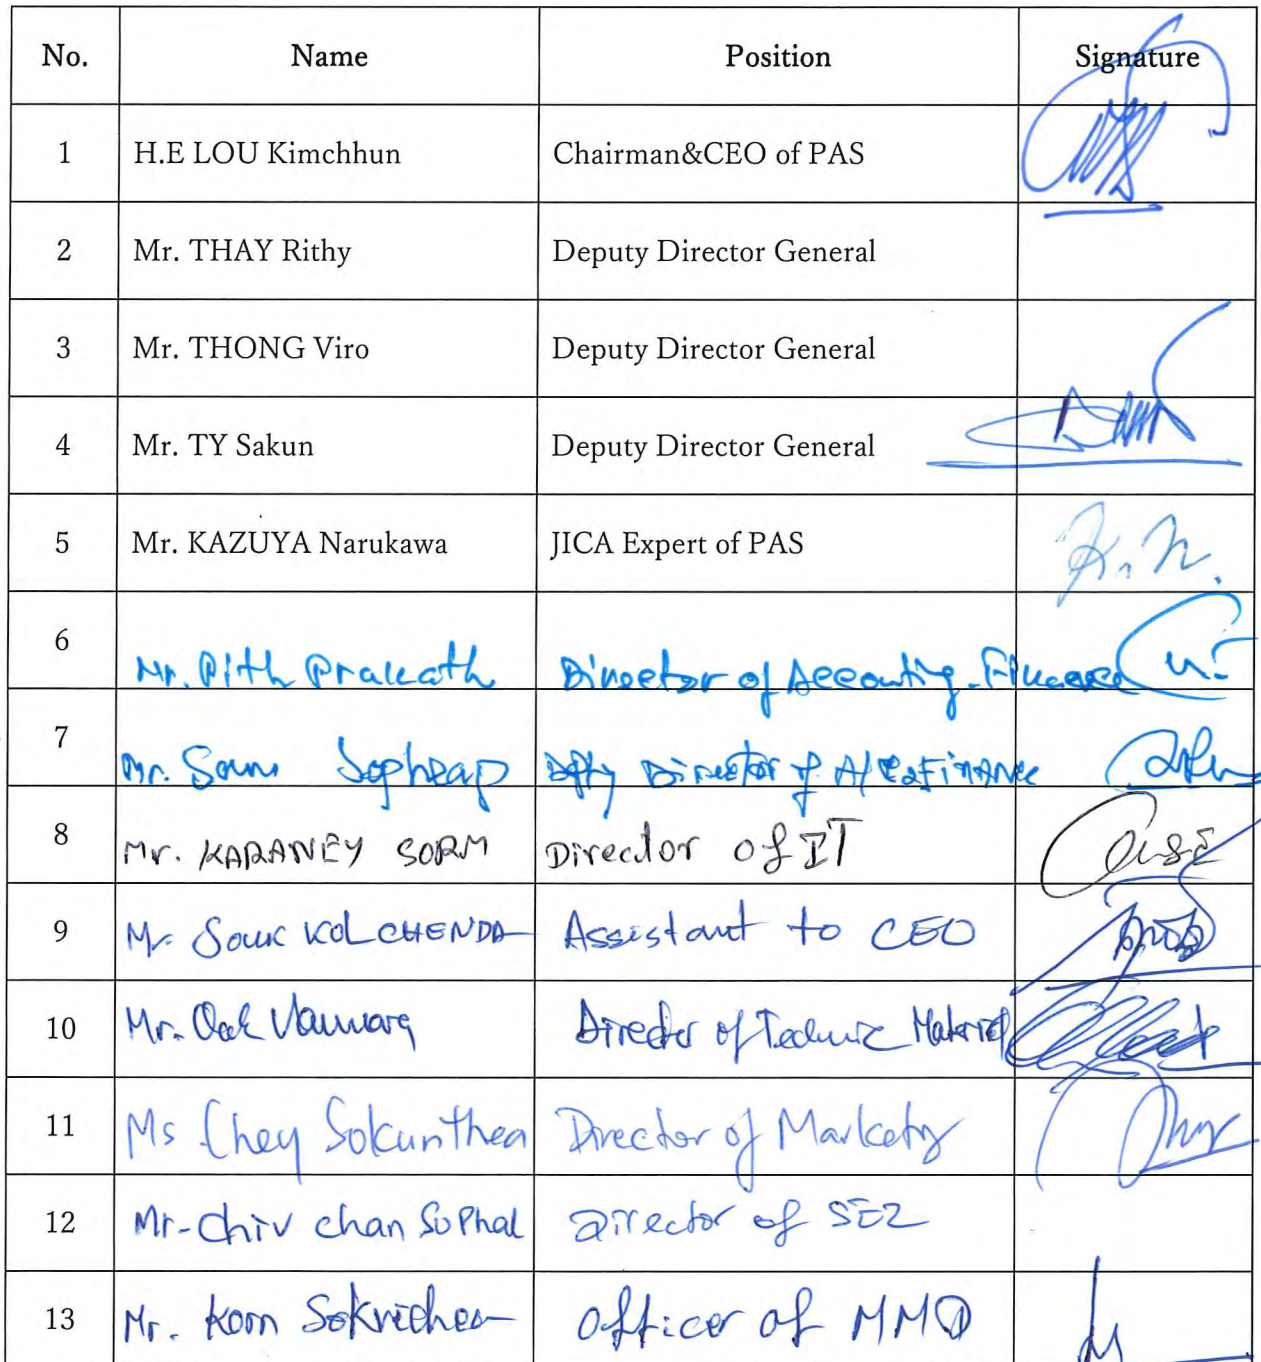 No. Name Position Signature
1 H.E LOU Kimchhun Chairman&CEO of PAS
2 Mr. THAY Rithy Deputy Director General
3 Mr. THONG Viro Deputy Director General
4 Mr. TY Sakun Deputy Director General
5 Mr. KAZUYA Narukawa JICA Expert of PAS K. N.
6 Mr. Pith Prakath Director of Accounting-Finance
7 Mr. Sopheap Director of Finance
8 Mr. KARANEY SORM Director of IT
9 Mr. KOL CHENDA Assistant to CEO
10 Mr. Director of Technic Materiel
11 Ms Chey Sokunthea Director of Marketg
12 Mr. Chiv chan Sophal Director of SEZ
13 Mr. Kom officer of MMD